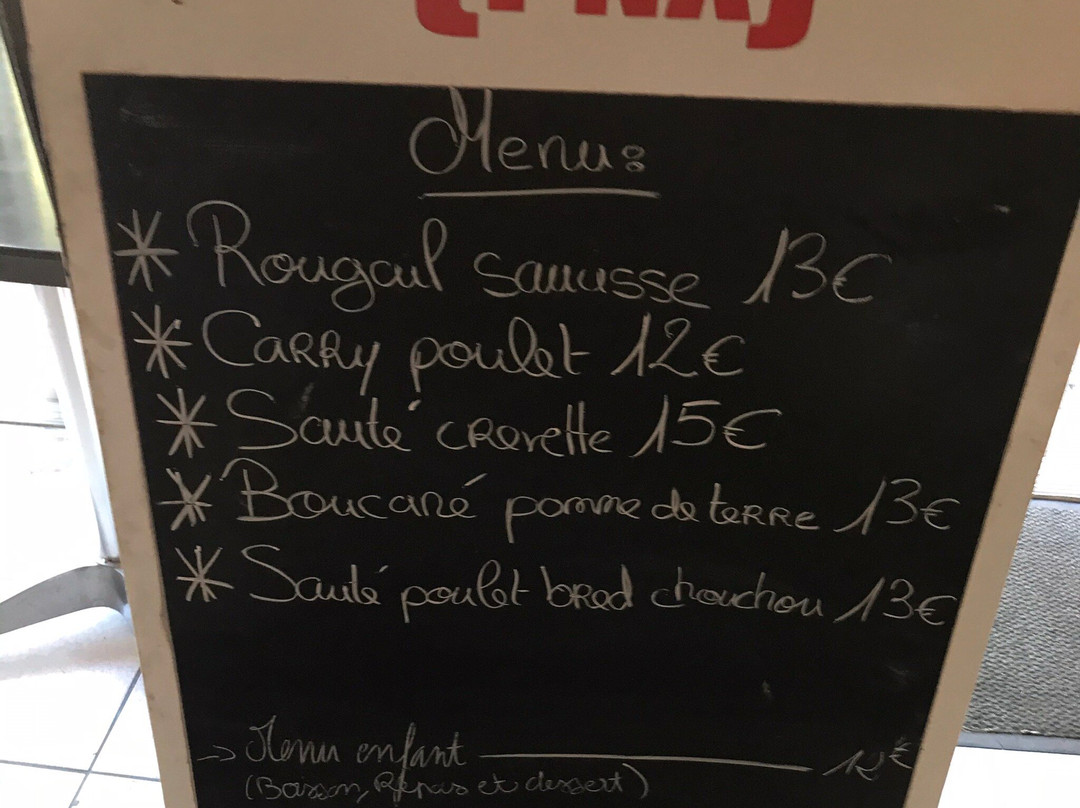 Menu:
* Rougail saucisse 13€
* Carry poulet 12€
* Sauté crevette 15€
* Boucané pomme de terre 13€
* Sauté poulet bred chouchou 13€
→ Menu enfant
(Boisson, Repas et dessert)